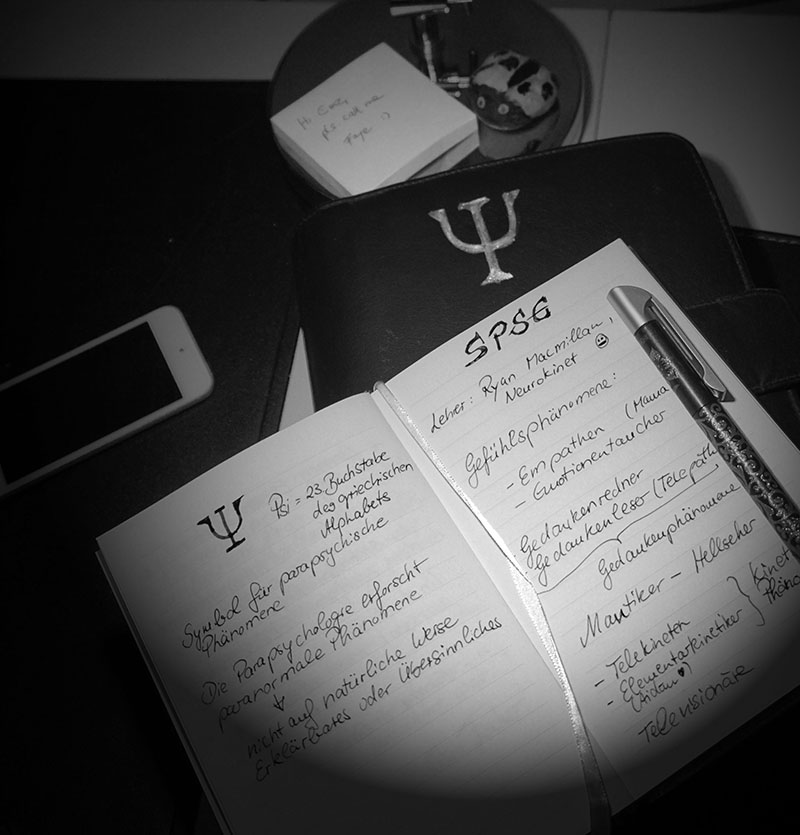 Hi Emz,
pls call me
Faye :)
Ψ
Ψ
Psi = 23. Buchstabe
des griechischen
Alphabets
Symbol für parapsychische
Phänomene
Die Parapsychologie erforscht
paranormale Phänomene
↓
nicht auf natürliche Weise
Erklärbares oder Übersinnliches
SPSG
Lehrer: Ryan Macmillan,
Neurokinet
Gefühlsphänomene:
- Empathen (Mama
- Emotionentaucher
Gedankenredner
Gedankenleser (Telepath
Gedankenphänomene
Mantiker - Hellseher
- Telekineten
- Elementarkinetiker
(Aidan ♥)
} Kinet
Phäno
Televisionäre